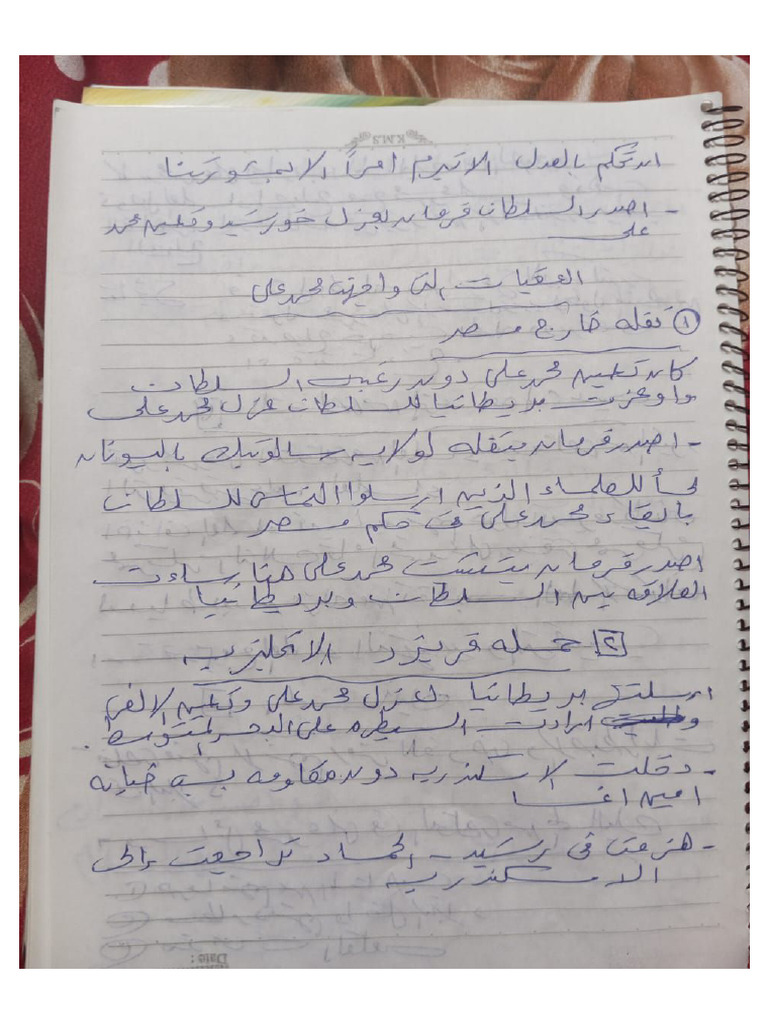 ان تحكم بالعدل الا تبرم امراً الا بمشورتنا
- اصدر السلطان فرمان بعزل خورشيد وتعيين محمد
على
العقبات التى واجهت محمد على
① نقله خارج مصر
كان تعيين محمد على دون رغبة السلطان
واوعزت بريطانيا للسلطان عزل محمد على
- اصدر فرمان بنقله لولاية سالونيك باليونان
لجأ للعلماء الذين ارسلوا التماس للسلطان
بابقاء محمد على فى حكم مصر
اصدر فرمان بتثبيت محمد على هنا ساءت
العلاقه بين السلطان وبريطانيا
[٢] حمله فريزر الانجليزيه
ارسلتها بريطانيا لعزل محمد على وتعيين الالفى
و ارادت السيطره على البحر المتوسط
- دخلت الاسكندريه دون مقاومه بسبب خيانه
امين اغا
- هزمت فى رشيد - الحماد تراجعت إلى
الاسكندريه
K.M.S
Date :